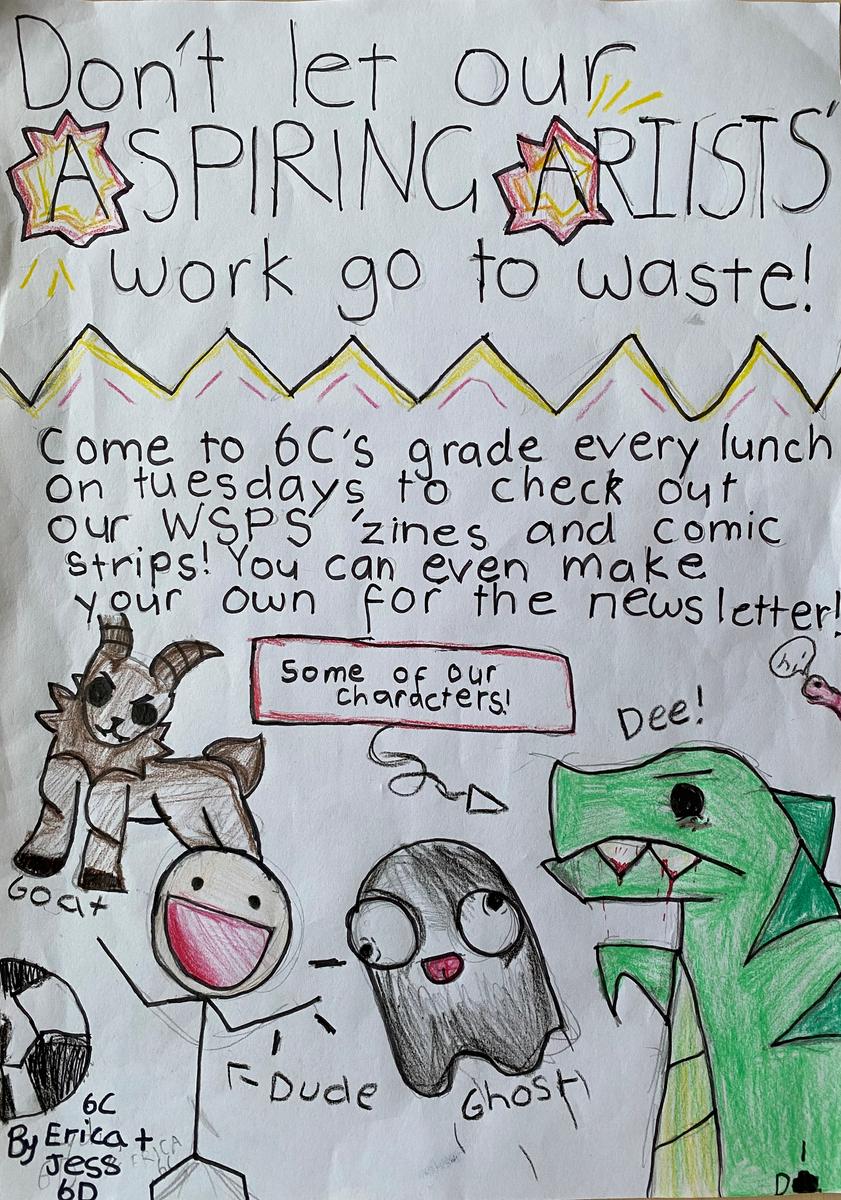 Don't let our
ASPIRING ARTISTS'
work go to waste!
Come to 6C's grade every lunch
on tuesdays to check out
our WSPS 'zines and comic
strips! You can even make
your own for the newsletter!
Some of our
characters!
hi!
Dee!
Goat
Dude
Ghost
6C
By Erica +
Jess
6D
ERICA